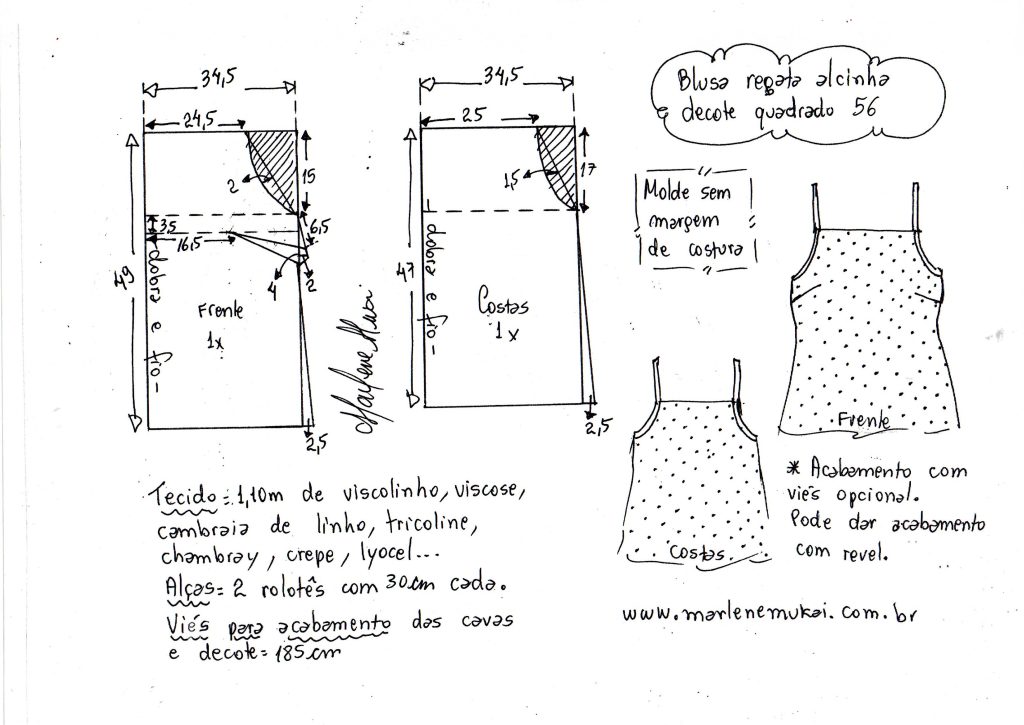 Blusa regata alcinha
e decote quadrado 56
34,5
24,5
49
15
2
3,5
16,5
6,5
4
2
dobra e fio
Frente
1x
2,5
Marlene Mukai
34,5
25
47
17
1,5
dobra e fio
Costas
1x
2,5
Molde sem
margem
de costura
Frente
Costas
Tecido = 1,10m de viscolinho, viscose,
cambraia de linho, tricoline,
chambray, crepe, lyocel...
Alças = 2 rolotês com 30 cm cada.
Viés para acabamento das cavas
e decote = 185cm
* Acabamento com
viés opcional.
Pode dar acabamento
com revel.
www.marlenemukai.com.br